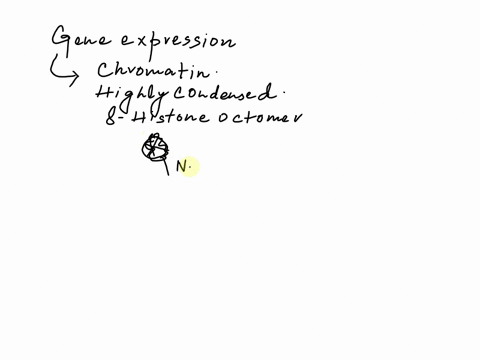 Gene expression
Chromatin.
Highly condensed.
8-Histone octomer
N.